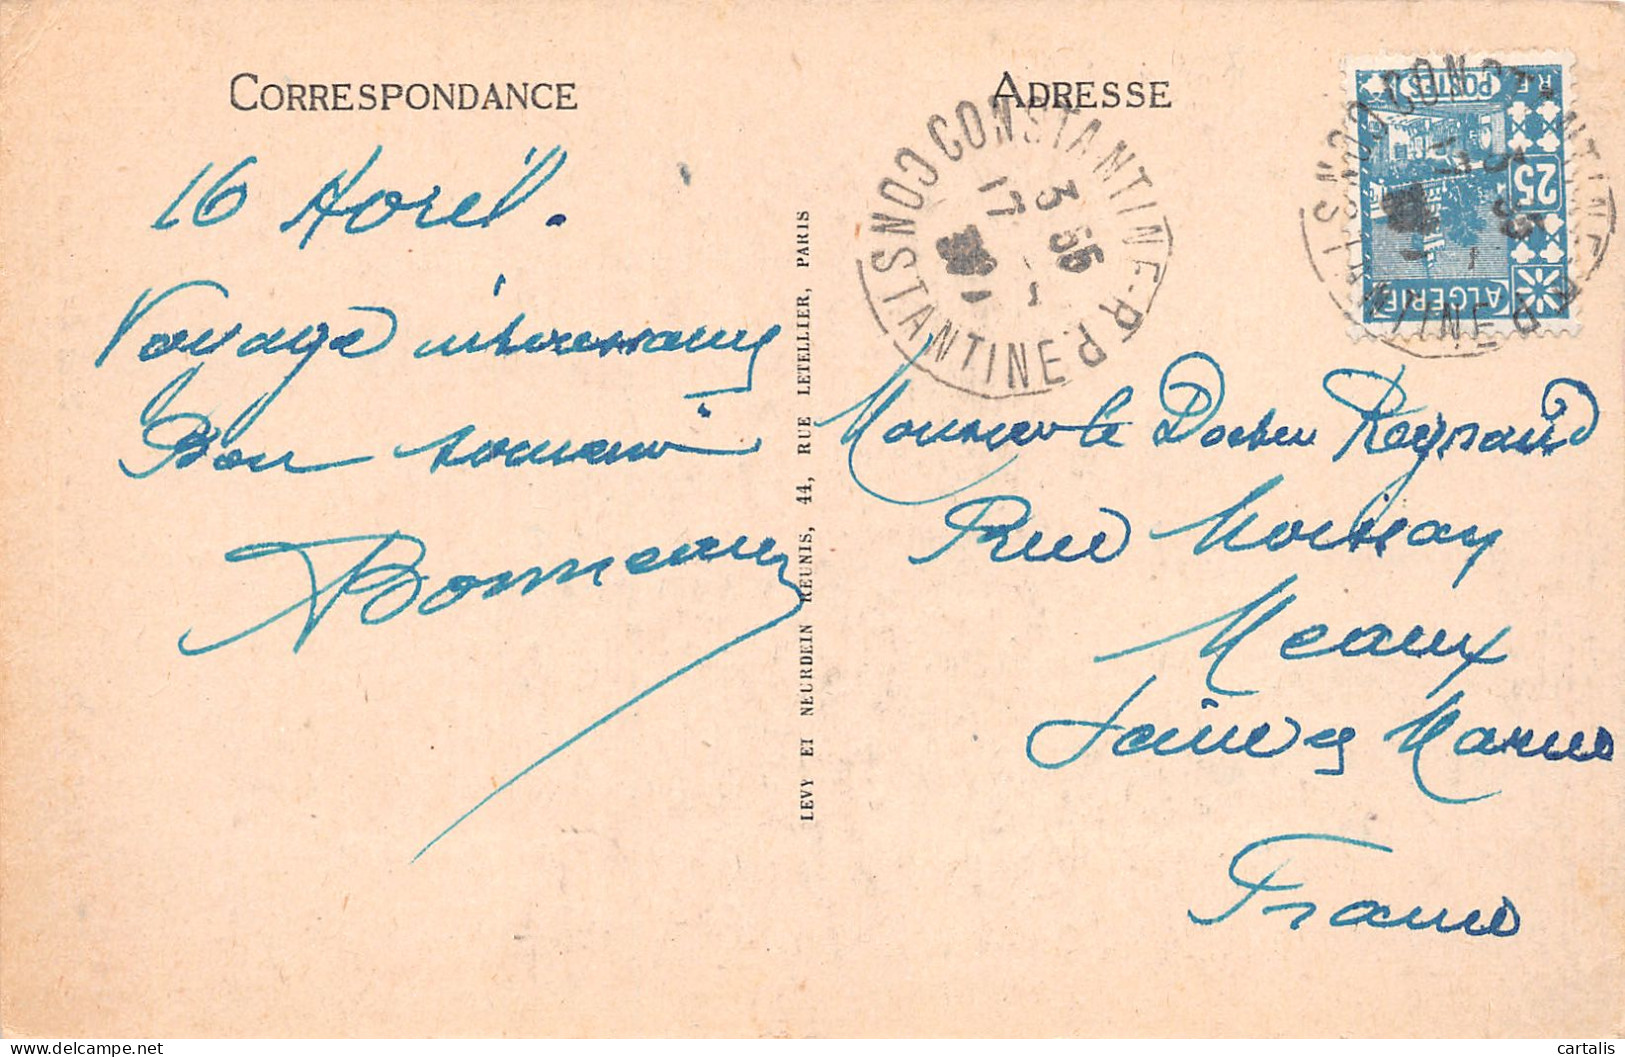 CORRESPONDANCE
16 Avril.
Voyage intéressant
Bon souvenir
Bonneau
LEVY ET NEURDEIN REUNIS, 44, RUE LETELLIER, PARIS
ADRESSE
CONSTANTINE R.P.
CONSTANTINE
3 55
17
R F
POSTES
25
ALGERIE
CONSTANTINE R.P.
CONSTANTINE
Monsieur le Docteur Regnaud
Rue
Meaux
Seine et Marne
France
cartalis
delcampe.net